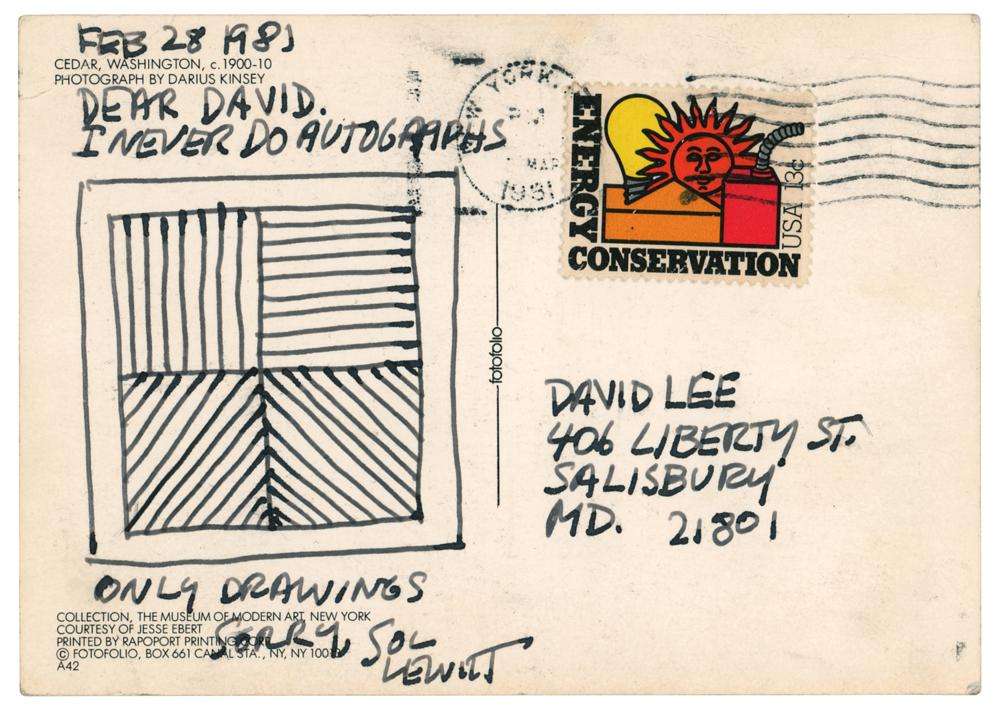 FEB 28 1981
CEDAR, WASHINGTON, c.1900-10
PHOTOGRAPH BY DARIUS KINSEY
DEAR DAVID.
I NEVER DO AUTOGRAPHS
ONLY DRAWINGS
COLLECTION, THE MUSEUM OF MODERN ART, NEW YORK
COURTESY OF JESSE EBERT
PRINTED BY RAPOPORT PRINTING CORP.
SORRY, SOL
LEWITT
© FOTOFOLIO, BOX 661 CANAL STA., NY, NY 10013
A42
fotofolio
YORK,
MAR
1981
ENERGY
CONSERVATION
USA 13c
DAVID LEE
406 LIBERTY ST.
SALISBURY
MD. 21801